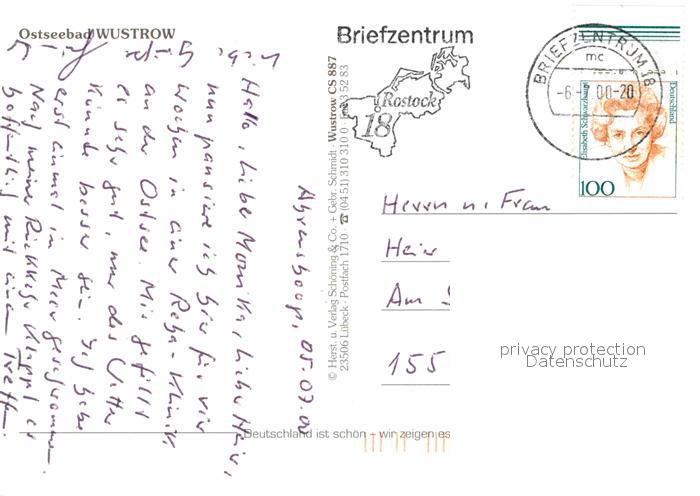 Ostseebad WUSTROW
Ahrenshoop, 05.07.00
Hallo, liebe Monika, lieber Heir,
nun pausiere ich hier für vier
Wochen in einer Reha-Klinik
an der Ostsee. Mir gefällt
es sehr gut, nur das Wetter
könnte besser sein. Ich habe
erst einmal im Meer geschwommen.
Nach meiner Rückkehr klappt es
hoffentlich mit einem Treffen.
© Herst. u. Verlag Schöning & Co. + Gebr. Schmidt · Wustrow CS 887
23506 Lübeck · Postfach 1710 · ☎ (04 51) 310 310 0 · 3 52 83
Deutschland ist schön – wir zeigen es
Briefzentrum
Rostock
18
BRIEFZENTRUM 18
mc
-6. 00-20
Elisabeth Schwarzhaupt
Deutschland
100
Herrn u. Frau
Heir
Am
155
privacy protection
Datenschutz